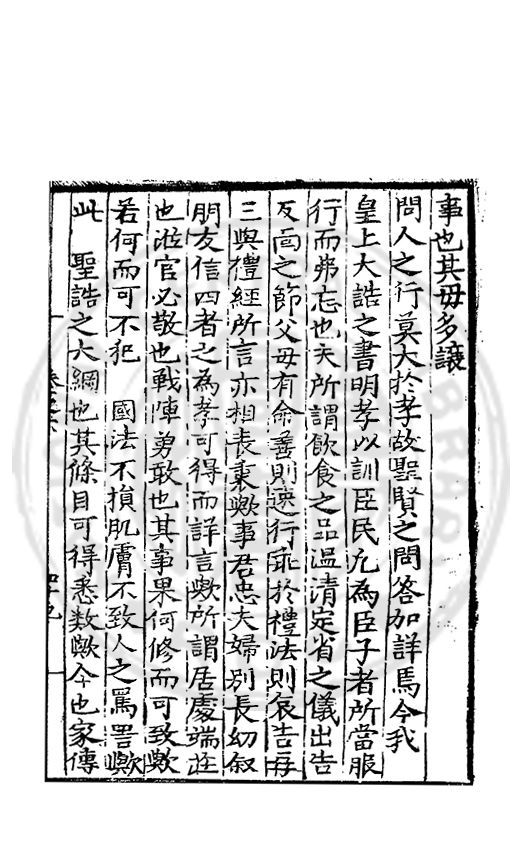 事也其毋多讓
問人之行莫大於孝故聖賢之問答加詳焉今我
皇上大誥之書明孝以訓臣民凡為臣子者所當服
行而弗忘也夫所謂飲食之品溫清定省之儀出告
反面之節父母有命善則速行乖於禮法則哀告再
三與禮經所言亦相表裏歟事君忠夫婦別長幼叙
朋友信四者之為孝可得而詳言歟所謂居處端莊
也涖官必敬也戰陣勇敢也其事果何修而可致歟
若何而可不犯 國法不損肌膚不致人之罵詈歟
此 聖誥之大綱也其條目可得悉數歟今也家傳